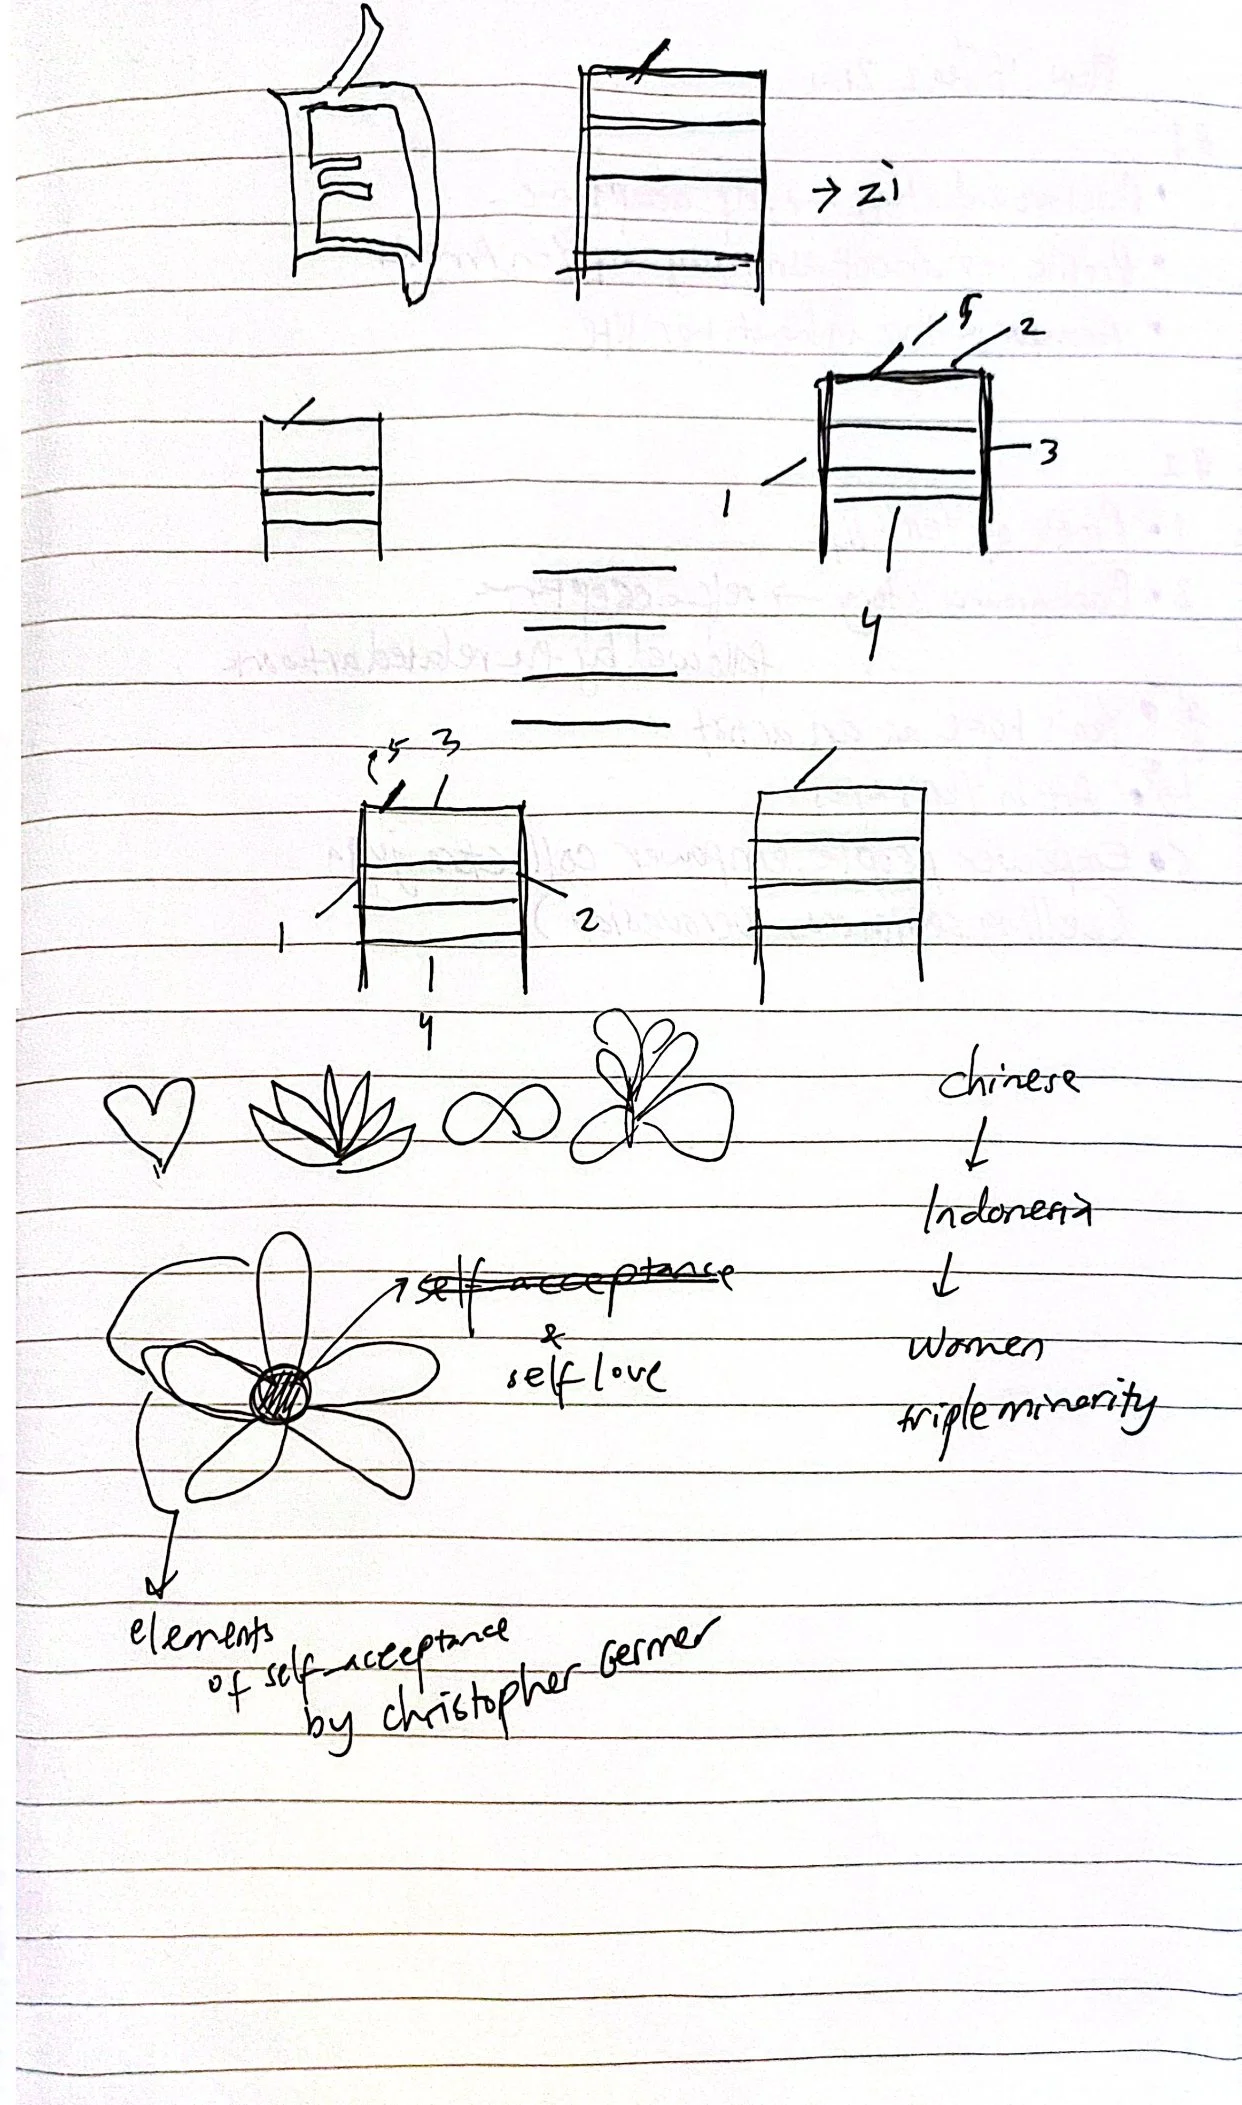 → zi
5
2
1
3
4
5
3
1
2
4
chinese
↓
Indonesia
↓
women
triple minority
self-acceptance
&
self love
elements
of self-acceptance
by christopher Germer